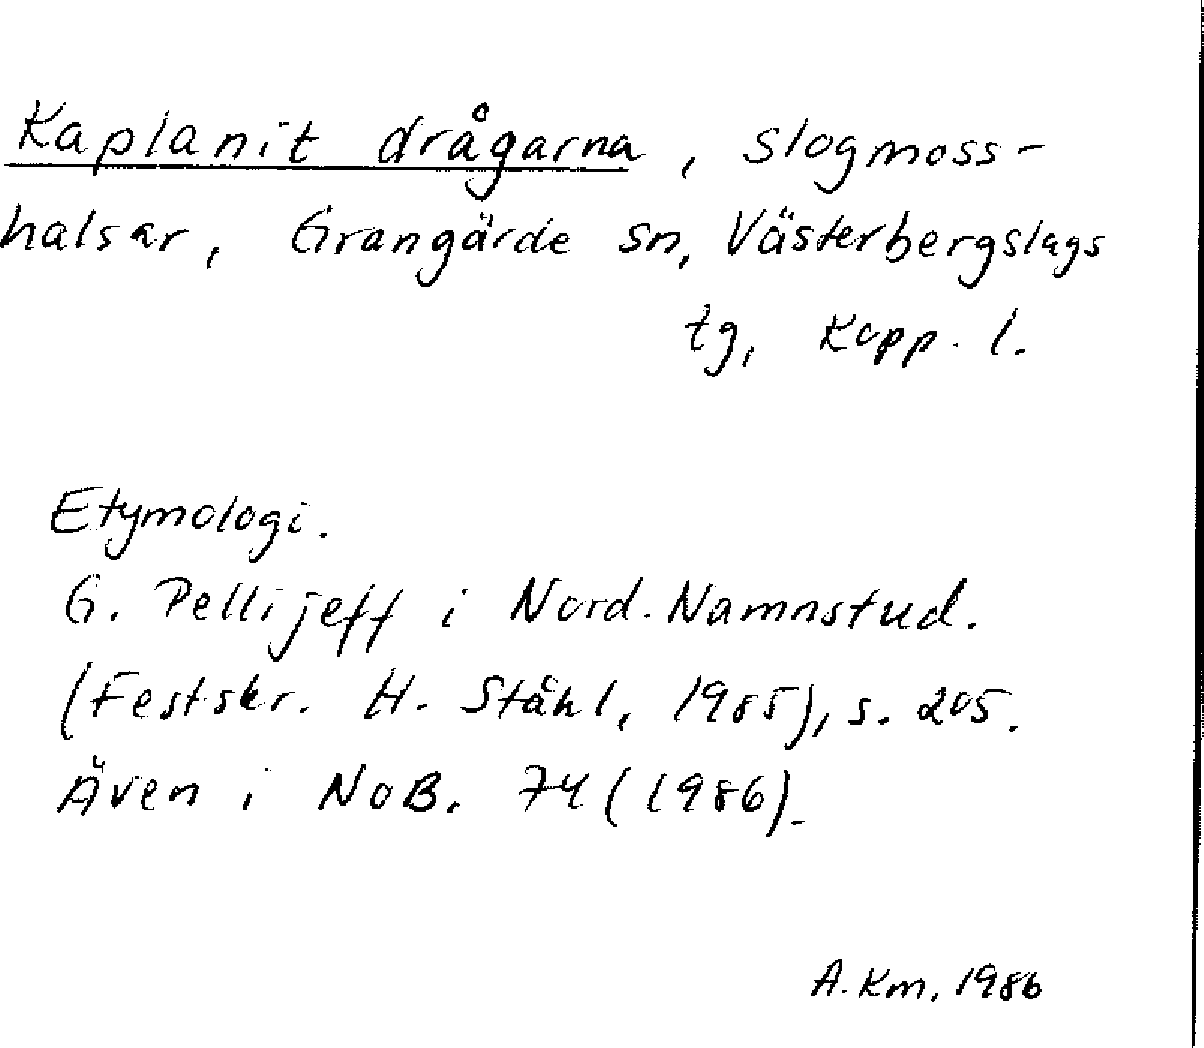 Kaplanit drågarna, slogmoss-
halsar, Grangärde sn, Västerbergslags
tg, Kopp. l.
Etymologi.
G. Pellijeff i Nord. Namnstud.
(Festskr. H. Ståhl, 1985), s. 205.
Även i NoB. 74 (1986).
A. Km, 1986